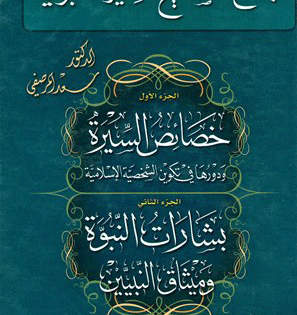 الدكتور
سعد المرصفي
الجزء الأول
خصائص السيرة
ودورها في تكوين الشخصية الإسلامية
الجزء الثاني
بشارات النبوة
وميثاق النبيين